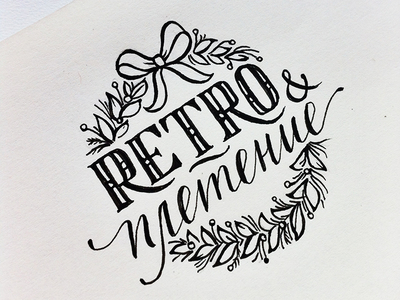 RETRO &
плетение